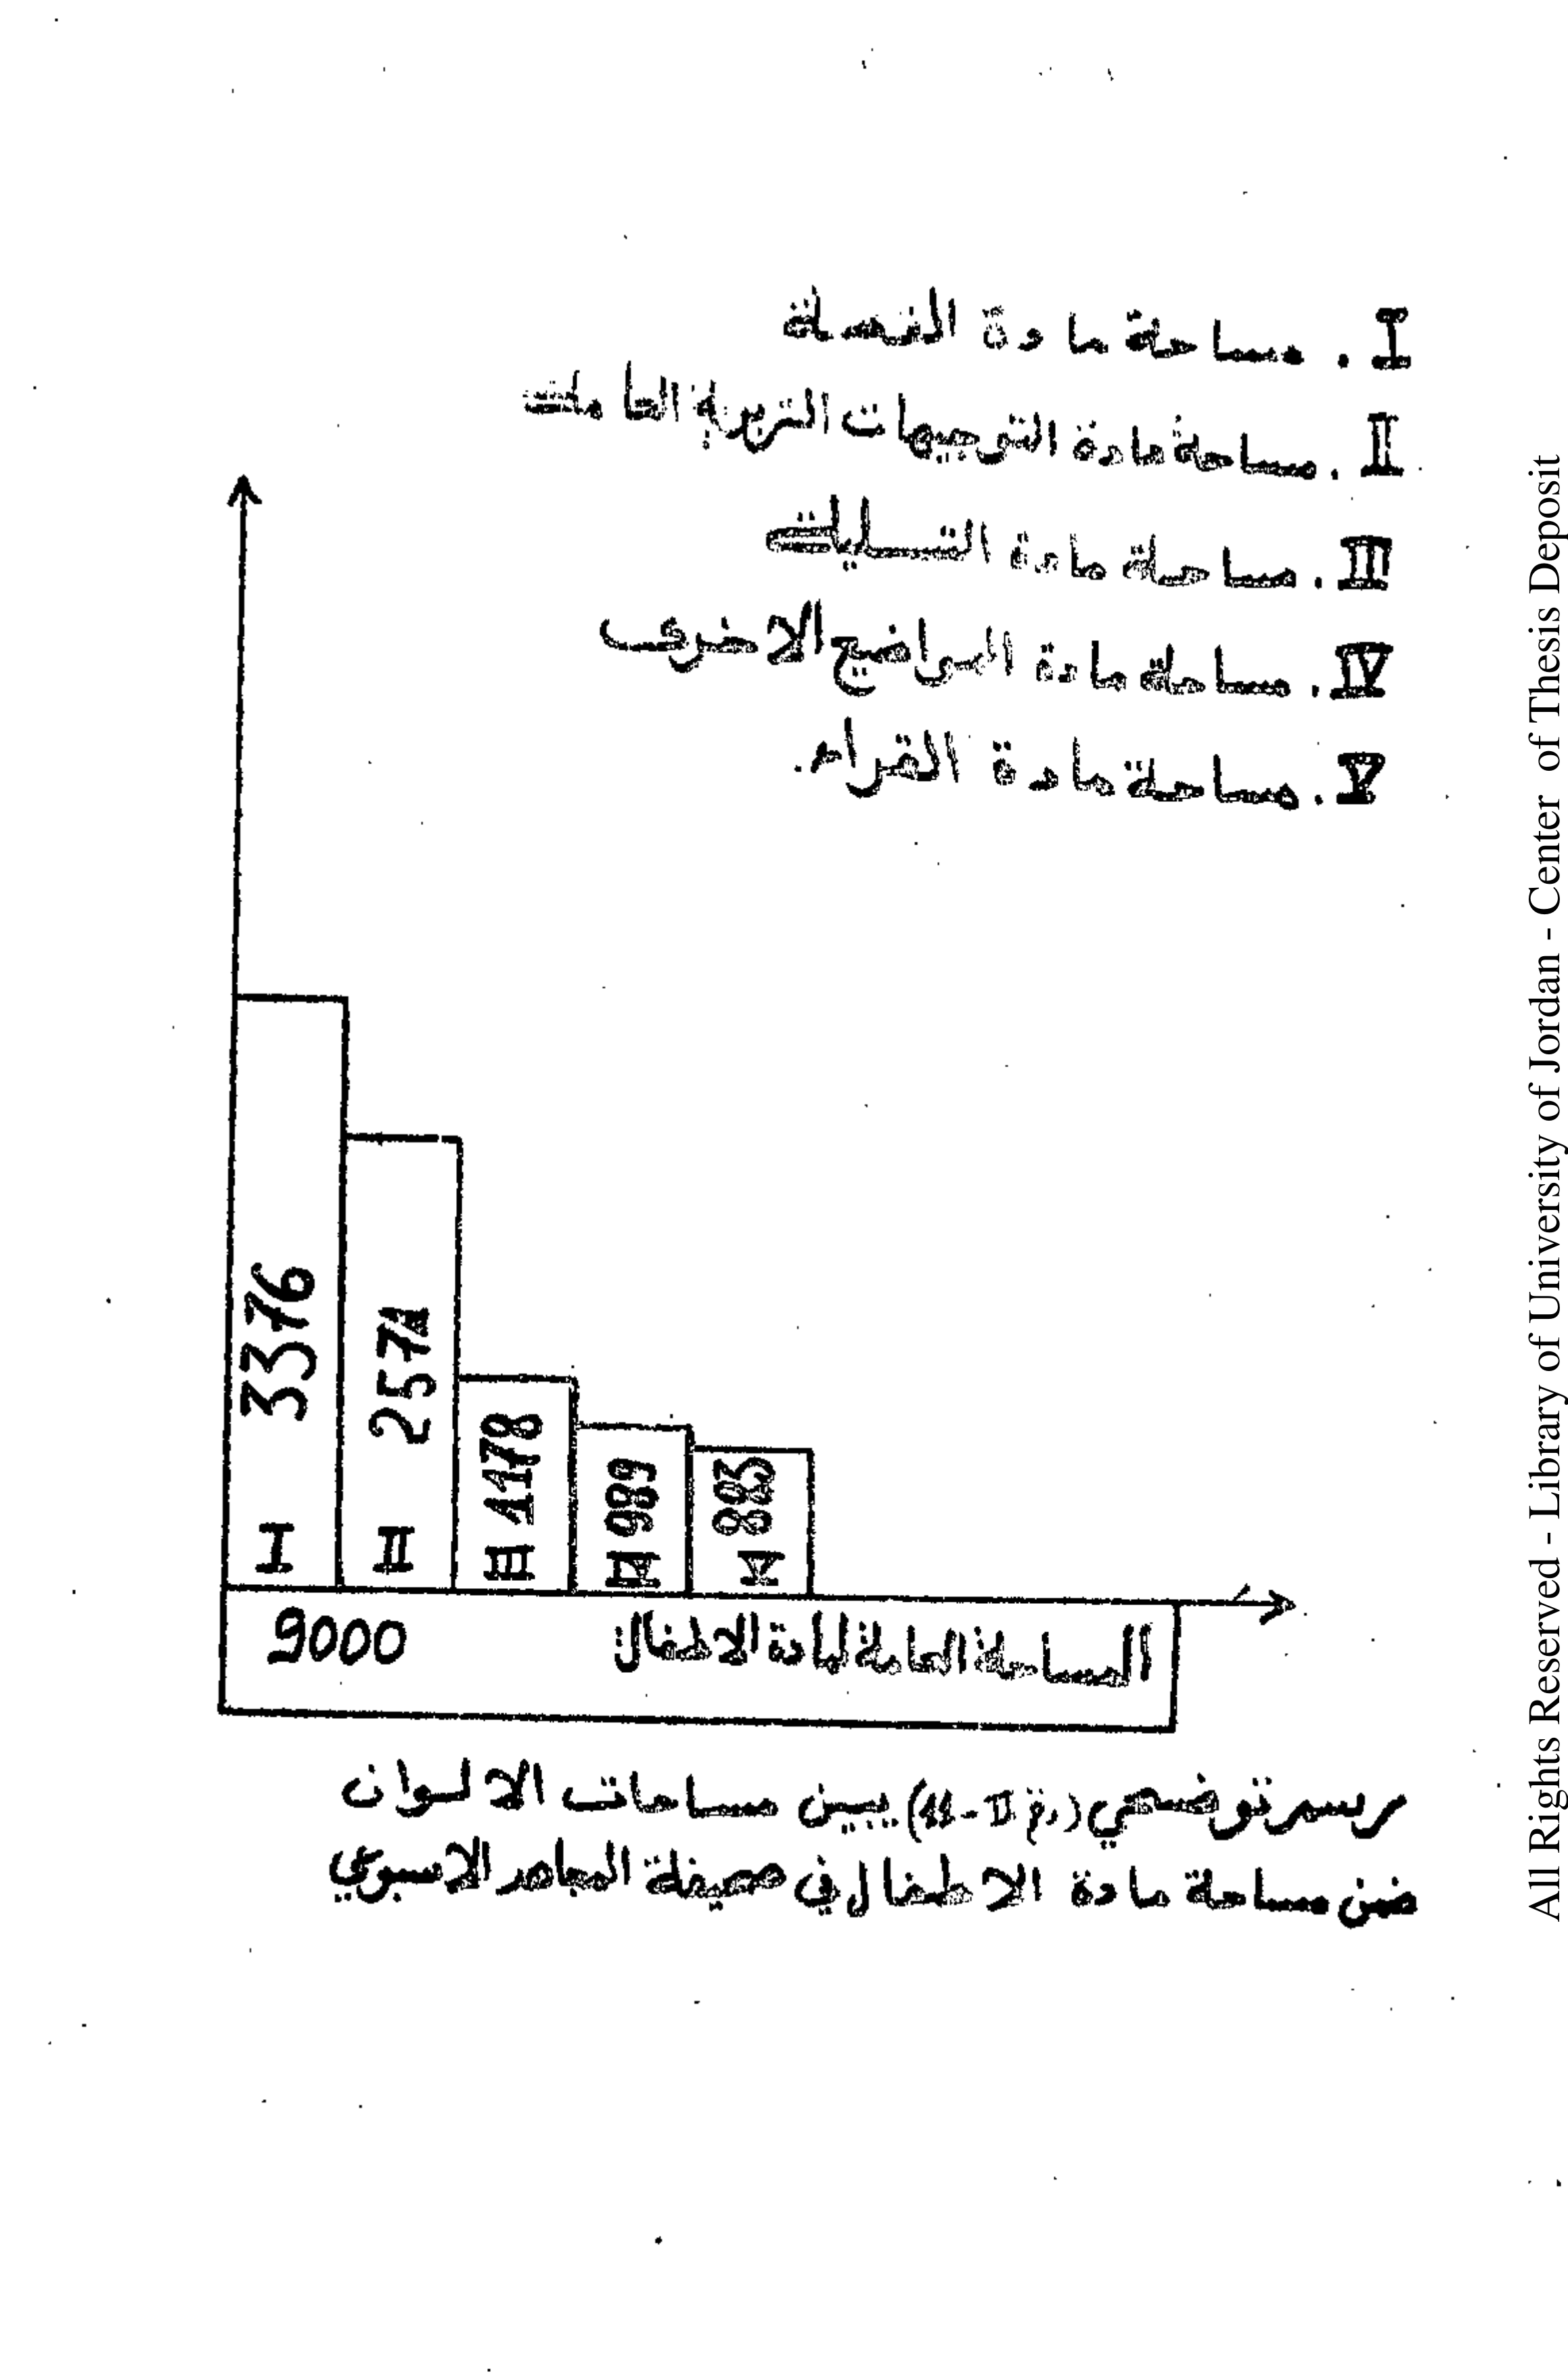 I. مساحة مادة القصة
II. مساحة مادة التوجيهات التربوية العامة
III. مساحة مادة التسلية
IV. مساحة مادة المواضيع الاخرى
V. مساحة مادة القراء.
3376
I
2571
II
1178
III
989
IV
883
V
9000 المساحة العامة لمادة الاطفال
رسم توضيحي (رقم II-11) يبين مساحات الالوان
ضمن مساحة مادة الاطفال في صحيفة المجاهد الاسبوعي
All Rights Reserved - Library of University of Jordan - Center of Thesis Deposit